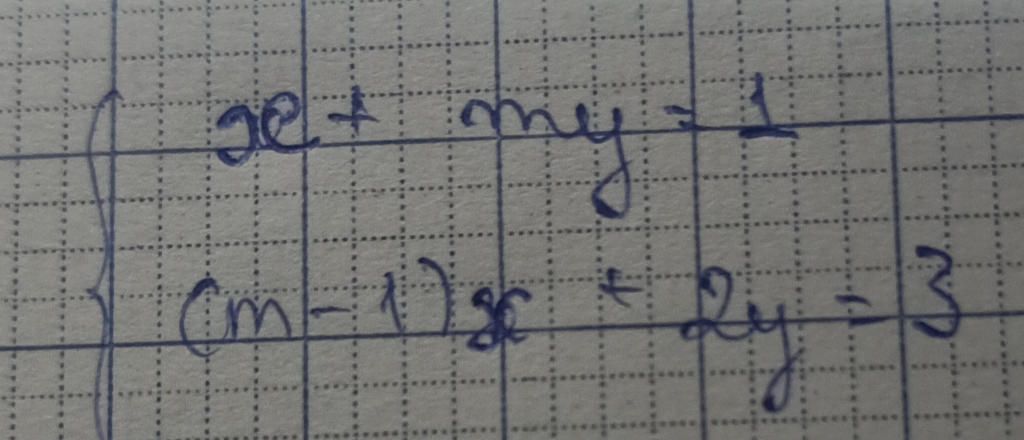 x + my = 1
(m - 1)x + 2y = 3